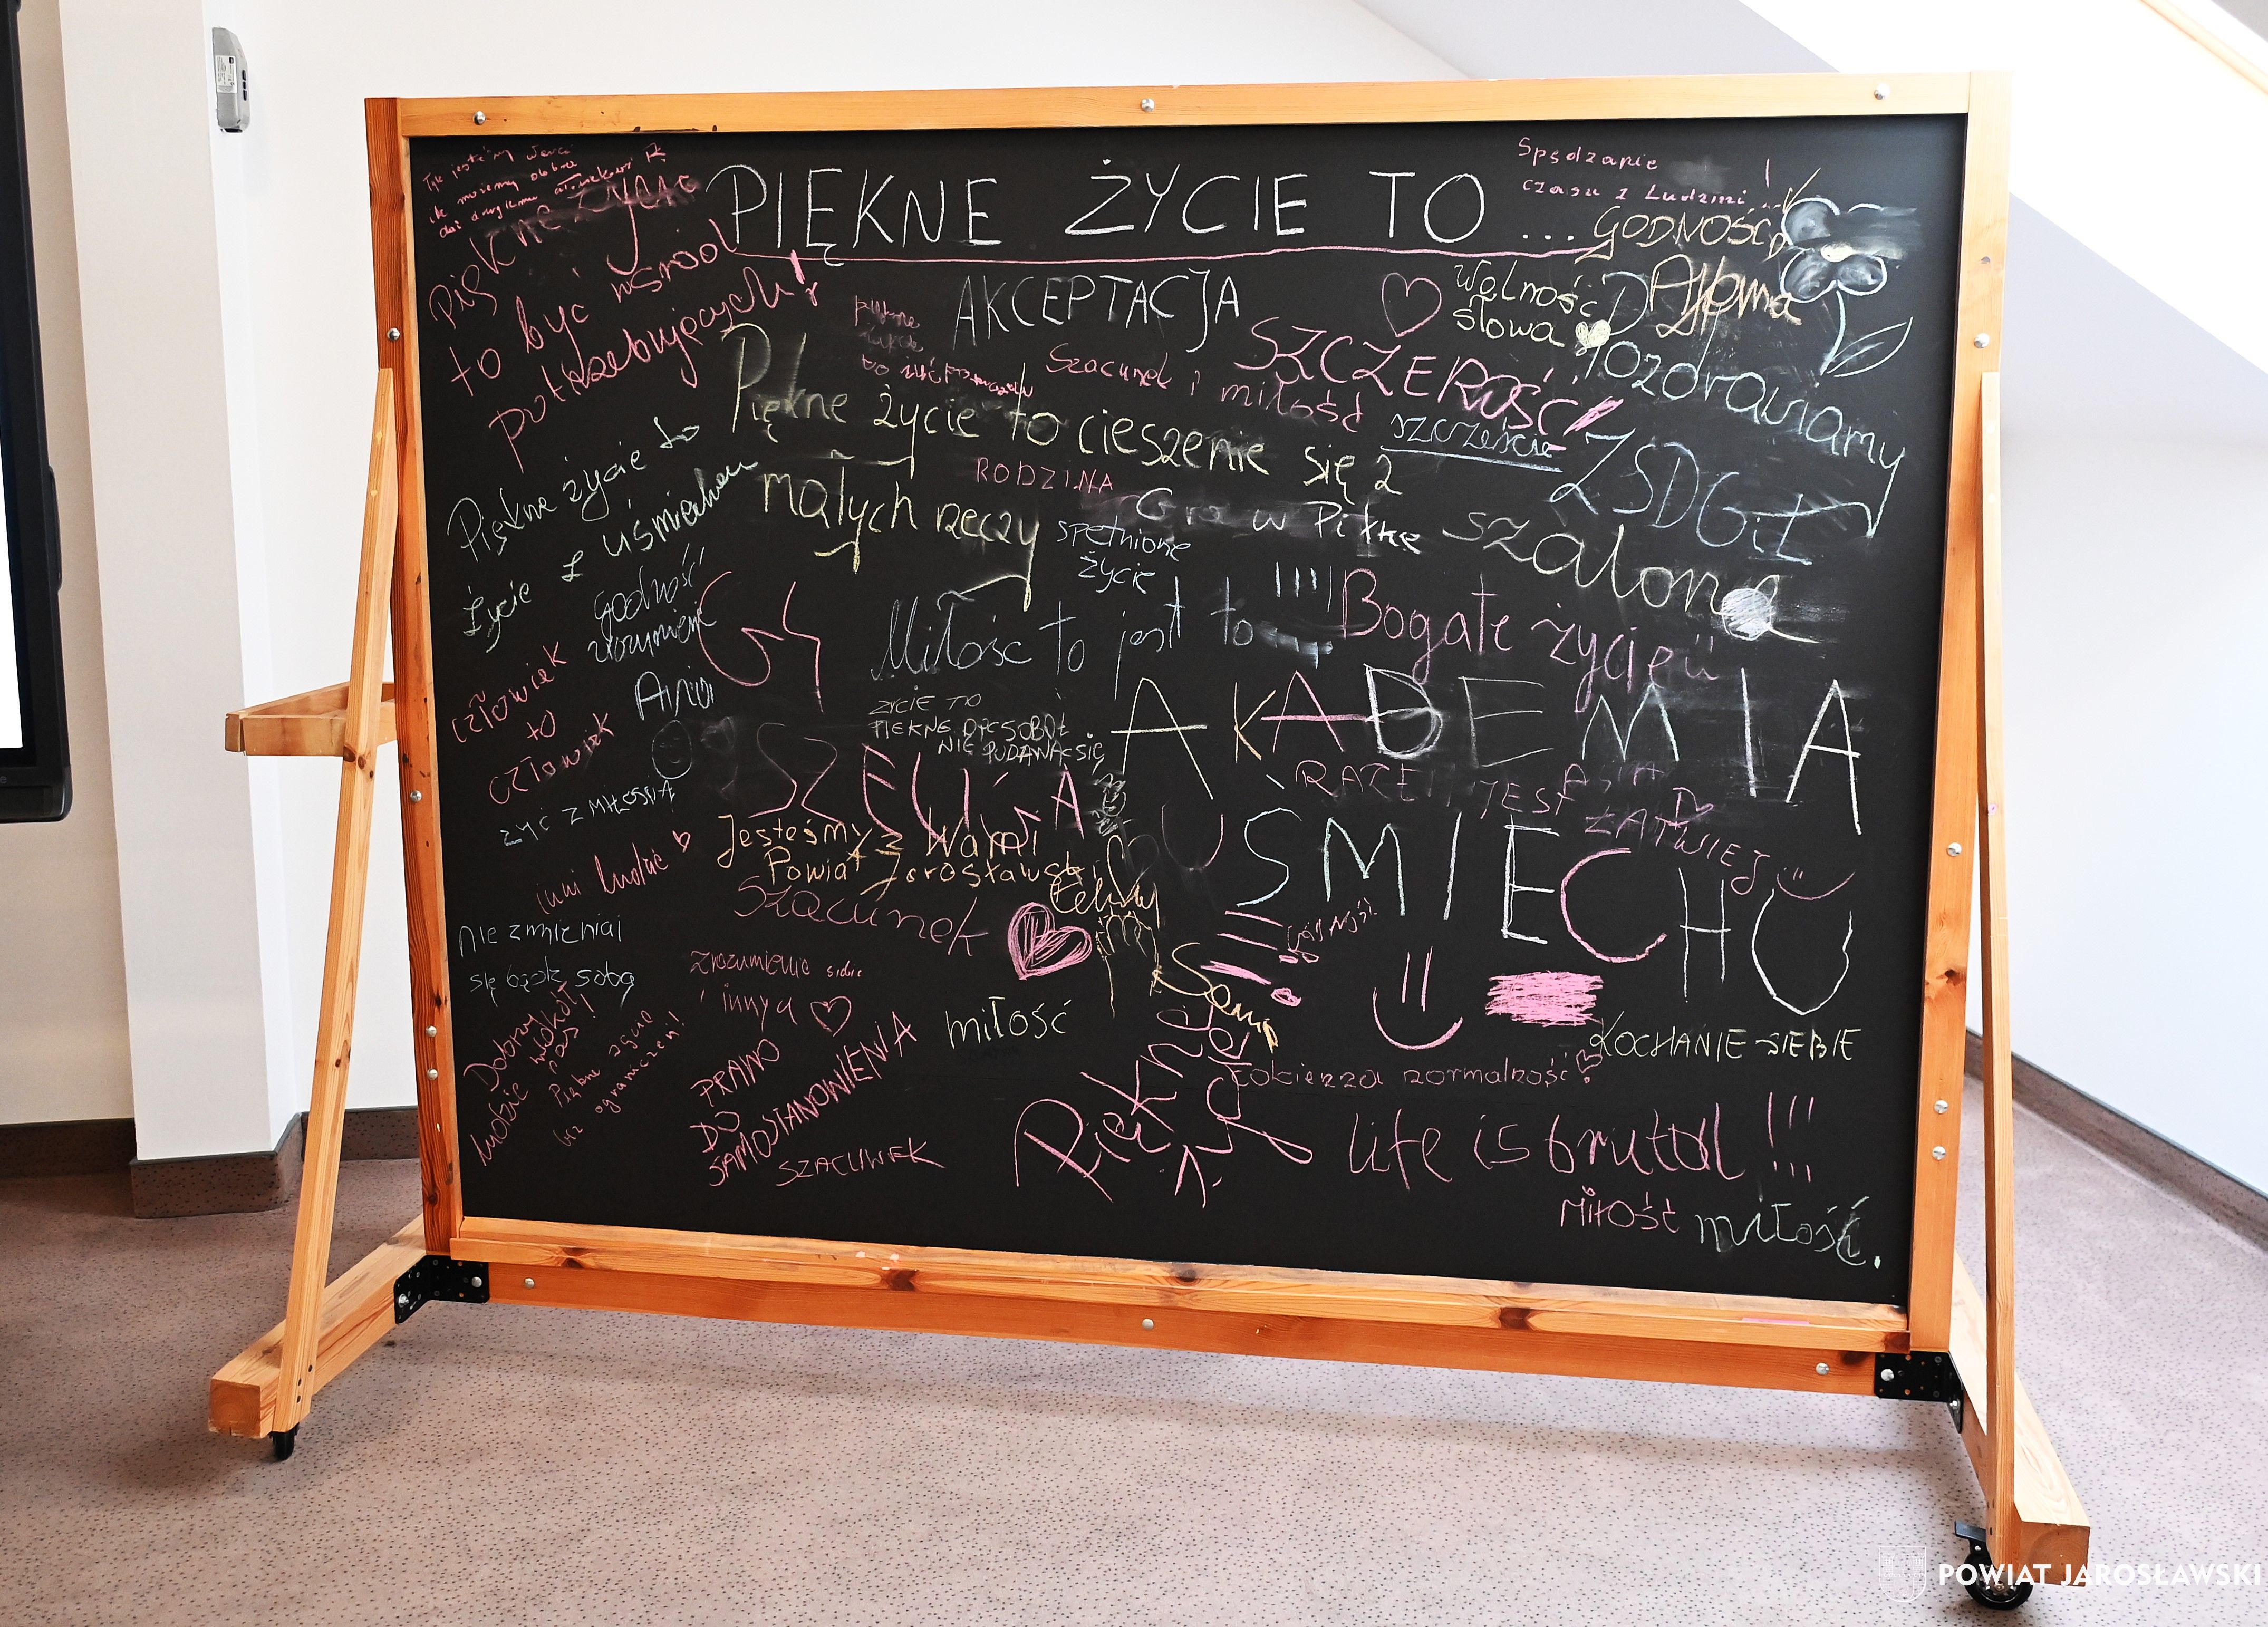 PIĘKNE ŻYCIE TO ...
Spędzanie
czasu z Ludźmi
GODNOŚĆ
Tyle jesteśmy warci
ile możemy
dać drugiemu
piękne życie
to być wśród
potrzebujących!
AKCEPTACJA
Wolność
słowa
piękne
to żyć
Szacunek i miłość
SZCZEROŚĆ!
Pozdrawiamy
ZSDGiL
szczęście
Piękne życie to cieszenie się z
małych rzeczy
RODZINA
Gra w Piłkę
szalone
spełnione
życie
Piękne życie to
życie z uśmiechem
godność
zrozumienie
Miłość to jest to
!!!!
Bogate życie
człowiek
to
człowiek
ŻYCIE TO
PIĘKNE
NIE PODDAWAĆ SIĘ
AKADEMIA
UŚMIECHU
RAZEM JEST
ŁATWIEJ
ŻYĆ Z MIŁOŚCIĄ
Jesteśmy z Wami
Powiat Jarosławski
inni ludzie
Szacunek
Nie zmieniaj
się bądź sobą
Zrozumienie siebie
i innych
miłość
KOCHANIE SIEBIE
Dobrzy
ludzie
wokół
nas!
Piękne życie
bez ograniczeń!
PRAWO
DO
SAMOSTANOWIENIA
SZACUNEK
Piękne
normalność!
life is brutal !!!
MIŁOŚĆ
miłość.
POWIAT JAROSŁAWSKI